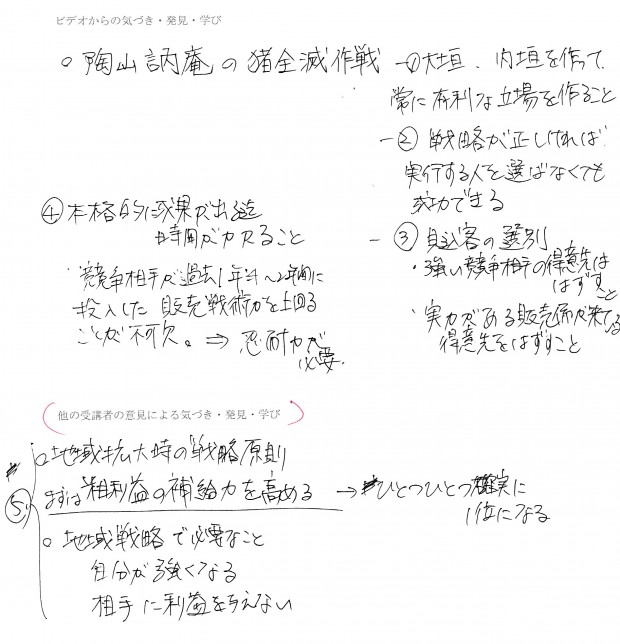 ビデオからの気づき・発見・学び
○ 陶山訥庵の猪全滅作戦 ー①大垣、内垣を作って、
常に有利な立場を作ること
ー② 戦略が正しければ
実行する人を選ばなくても
成功できる
④本格的に効果が出る迄
時間がカカること
・競争相手が過去1年半〜2年間に
投入した販売戦術力を上回る
ことが不可欠。⇒ 忍耐力が
必要。
ー ③ 見込客の選別
・強い競争相手の得意先は
はずすこと
・実力がある販売係が来てる
得意先をはずすこと
他の受講者の意見による気づき・発見・学び
○地域拡大時の戦略原則
⑤ まずは粗利益の補給力を高める → ひとつひとつ確実に
1位になる
○ 地域戦略で必要なこと
自分が強くなる
相手に利益を与えない